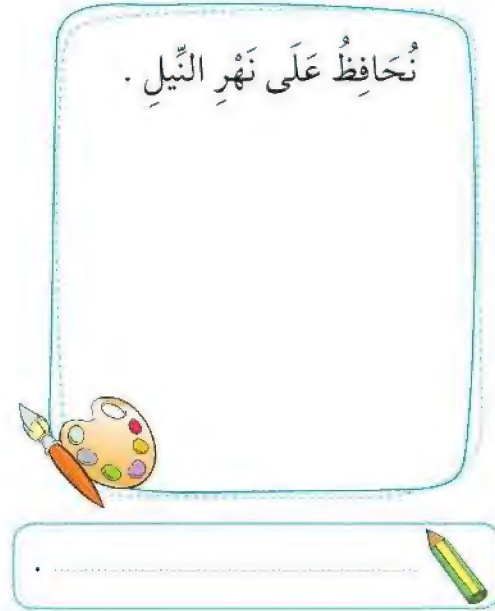 نُحَافِظُ عَلَى نَهْرِ النِّيلِ .